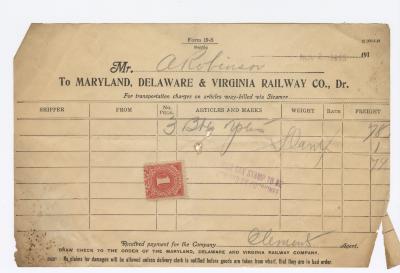 Form 19-S
191
Mr. A Robinson
To MARYLAND, DELAWARE & VIRGINIA RAILWAY CO., Dr.
For transportation charges on articles way-billed via Steamer
SHIPPER FROM No. PKGS. ARTICLES AND MARKS WEIGHT RATE FREIGHT
3 78
1
79
1
Received payment for the Company Clement Agent.
DRAW CHECK TO THE ORDER OF THE MARYLAND, DELAWARE AND VIRGINIA RAILWAY COMPANY.
No claims for damages will be allowed unless delivery clerk is notified before goods are taken from wharf, that they are in bad order.